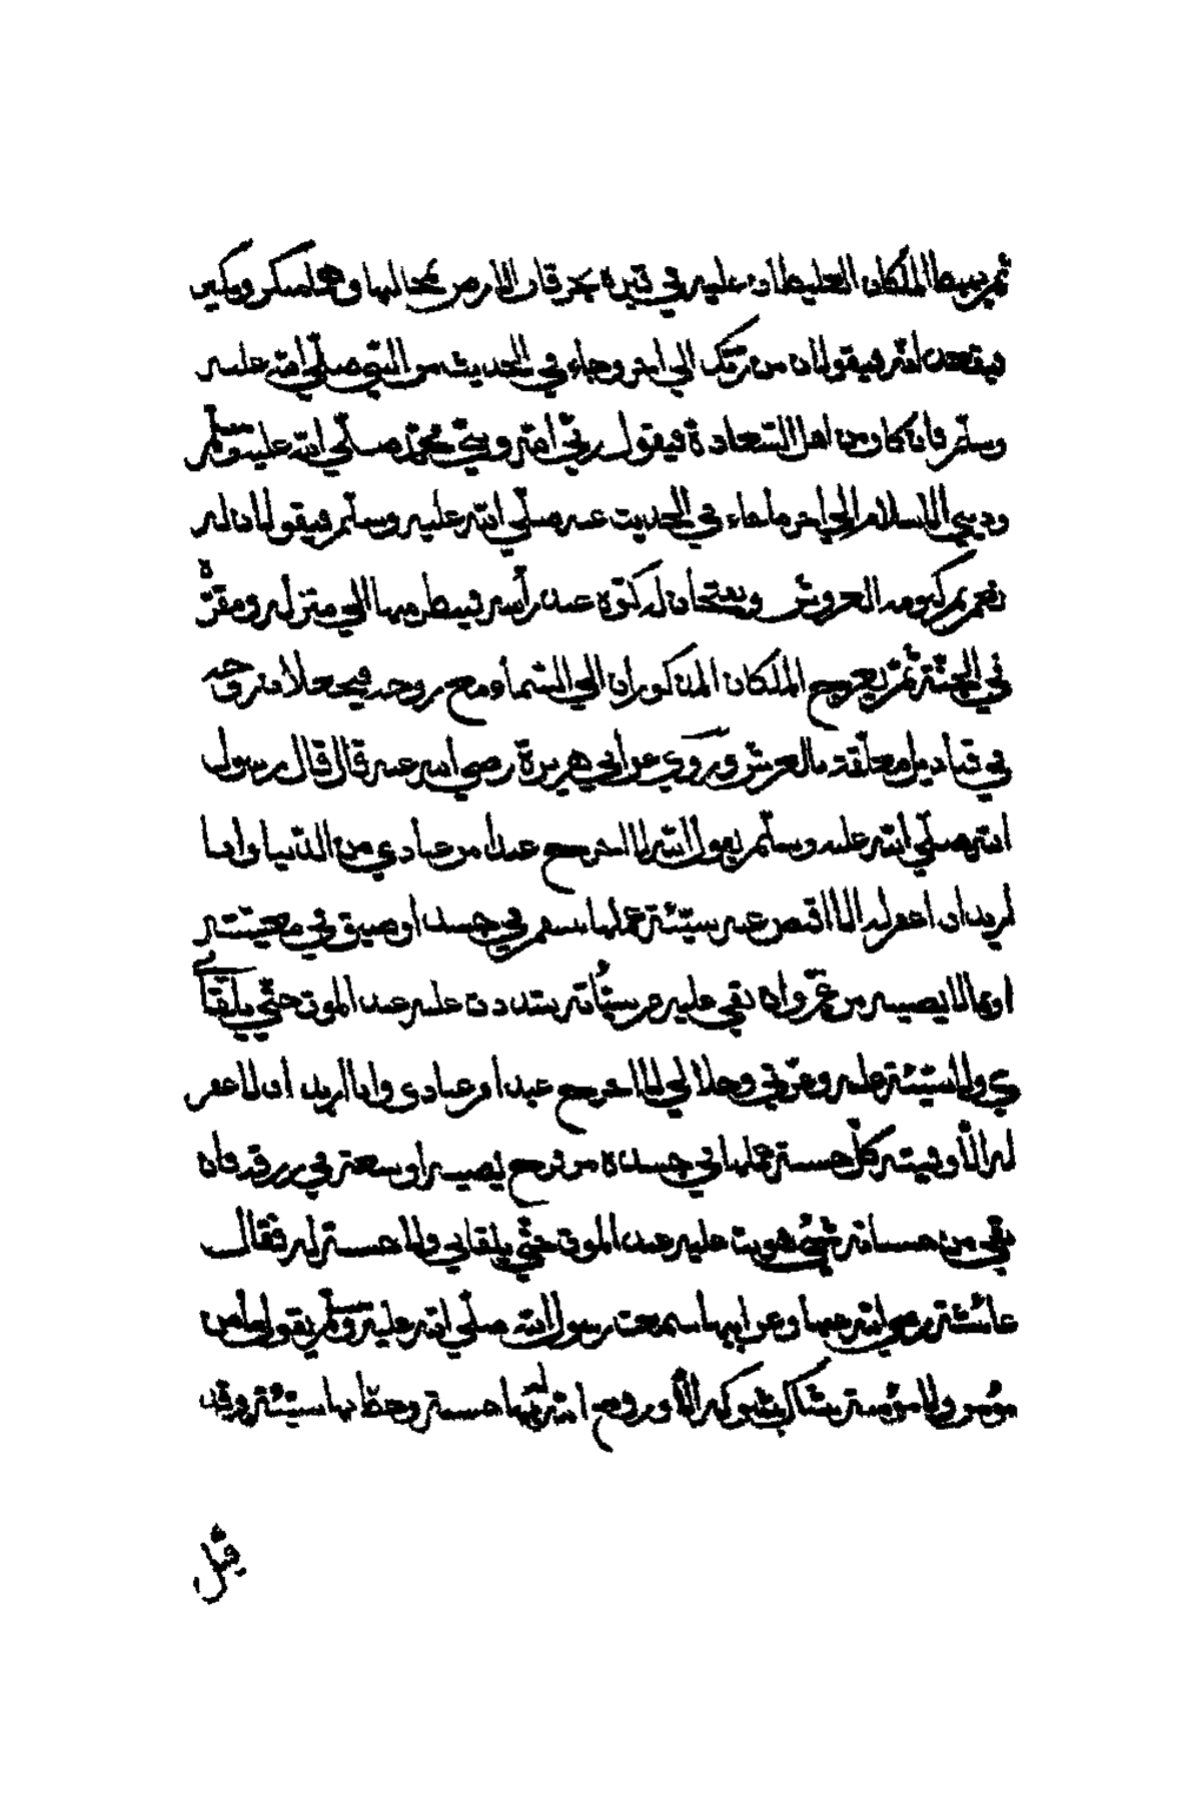 ثم يهبط الملكان الغليظان عليه في قبره يخرقان الارض بمخالبها وهما منكر ونكير
فيقعدانه فيقولان من ربك الي اخر وجاء في الحديث من النبي صلي الله عليه
وسلم فان كان من اهل السعادة فيقول ربي الله ونبيي محمد صلي الله عليه وسلم
وديني الاسلام الي اخر ما جاء في الحديث عنه صلي الله عليه وسلم فيقولان له
نم كنومة العروس ويفتحان له كوة عند رأسه فينظر منها الي منزله ومقره
في الجنة ثم يعرج الملكان المذكوران الي السمآء مع روحه فيجعلان روحه
في قناديل معلقة بالعرش وروي عن أبي هريرة رضي الله عنه قال قال رسول
الله صلي الله عليه وسلم يقول الله لا اخرج عبدا من عبادي من الدنيا وانا
اريد ان اغفر له الا اقتص عنه سيئة عملها بسقم في جسده او ضيق في معيشته
او بما لا يصيبه من غم وان بقي عليه من سيئاته شددت عليه عند الموت حتي يلقا
ي ولا سيئة عليه وعزتي وجلالي لا اخرج عبدا من عبادي وانا اريد ان لا اغفر
له الا وفيته كل حسنة عملها في جسده من فرح يصيبه او سعة في رزقه فان
بقي من حسناته شيء هونت عليه عند الموت حتي يلقاني ولا حسنة له فقال
عائشة رضي الله عنها وعن ابيها سمعت رسول الله صلي الله عليه وسلم يقول ما من
مؤمن ولا مؤمنة يشاك بشوكة الا ورفع الله له بها حسنة وحط بها سيئة وقد
قيل